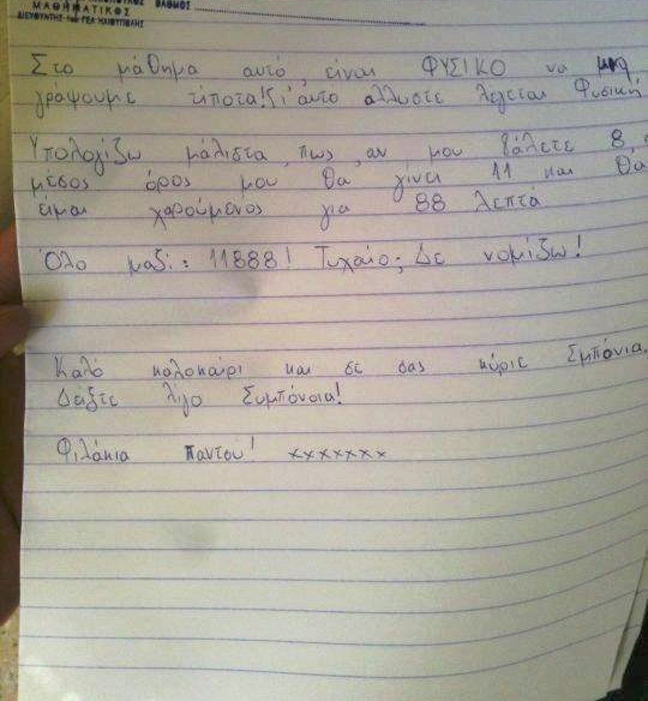 ΜΑΘΗΜΑΤΙΚΟΣ ΒΑΘΜΟΣ
ΔΙΕΥΘΥΝΤΗΣ του ΓΕΛ ΗΛΙΟΥΠΟΛΗΣ
Στο μάθημα αυτό, είναι ΦΥΣΙΚΟ να μη
γράψουμε τίποτα! Γι' αυτό αλλωστε λέγεται Φυσική
Υπολογίζω μάλιστα, πως, αν μου βάλετε 8,
μέσος όρος μου θα γίνει 11 και θα
είμαι χαρούμενος για 88 λεπτά
Όλο μαζί: 11888! Τυχαίο; Δε νομίζω!
Καλό καλοκαίρι και σε σας κύριε Σμπόνια.
Δείξτε λίγο Συμπόνοια!
Φιλάκια παντού! xxxxxxx